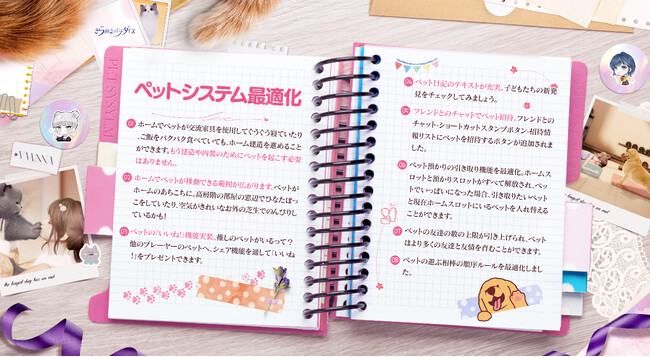 ペットシステム最適化
Love
01 ホームでペットが交流家具を使用してぐうぐう寝ていたり
、ご飯をパクパク食べていても、ホーム建造を進めることが
できます。もう建造や内装のためにペットを起こす必要
はありません。
02 ホームでペットが移動できる範囲が広がります。ペットが
ホームのあちこちに。高層階の部屋の窓辺でひなたぼっ
こをしていたり、空気がきれいなお外の芝生でのんびりし
ているかも!
03 ペットの「いいね!」機能実装。推しのペットがいるって?
他のプレーヤーのペットへ、シェア機能を通して「いいね
!」をプレゼントできます。
04 ペット日記のテキストが充実。子どもたちの新発
見をチェックしてみましょう。
05 フレンドとのチャットでペット招待。フレンドとの
チャット-ショートカットスタンプボタン-招待情
報リストにペットを招待するボタンが追加されま
した。
06 ペット預かりの引き取り機能を最適化。ホームス
ロットと預かりスロットがすべて解放され、ペッ
トでいっぱいになった場合、引き取りたいペット
と現在ホームスロットにいるペットを入れ替える
ことができます。
07 ペットの友達の数の上限が引き上げられ、ペット
はより多くの友達と友情を育むことができます。
08 ペットの遊ぶ相棒の順序ルールを最適化しまし
た。